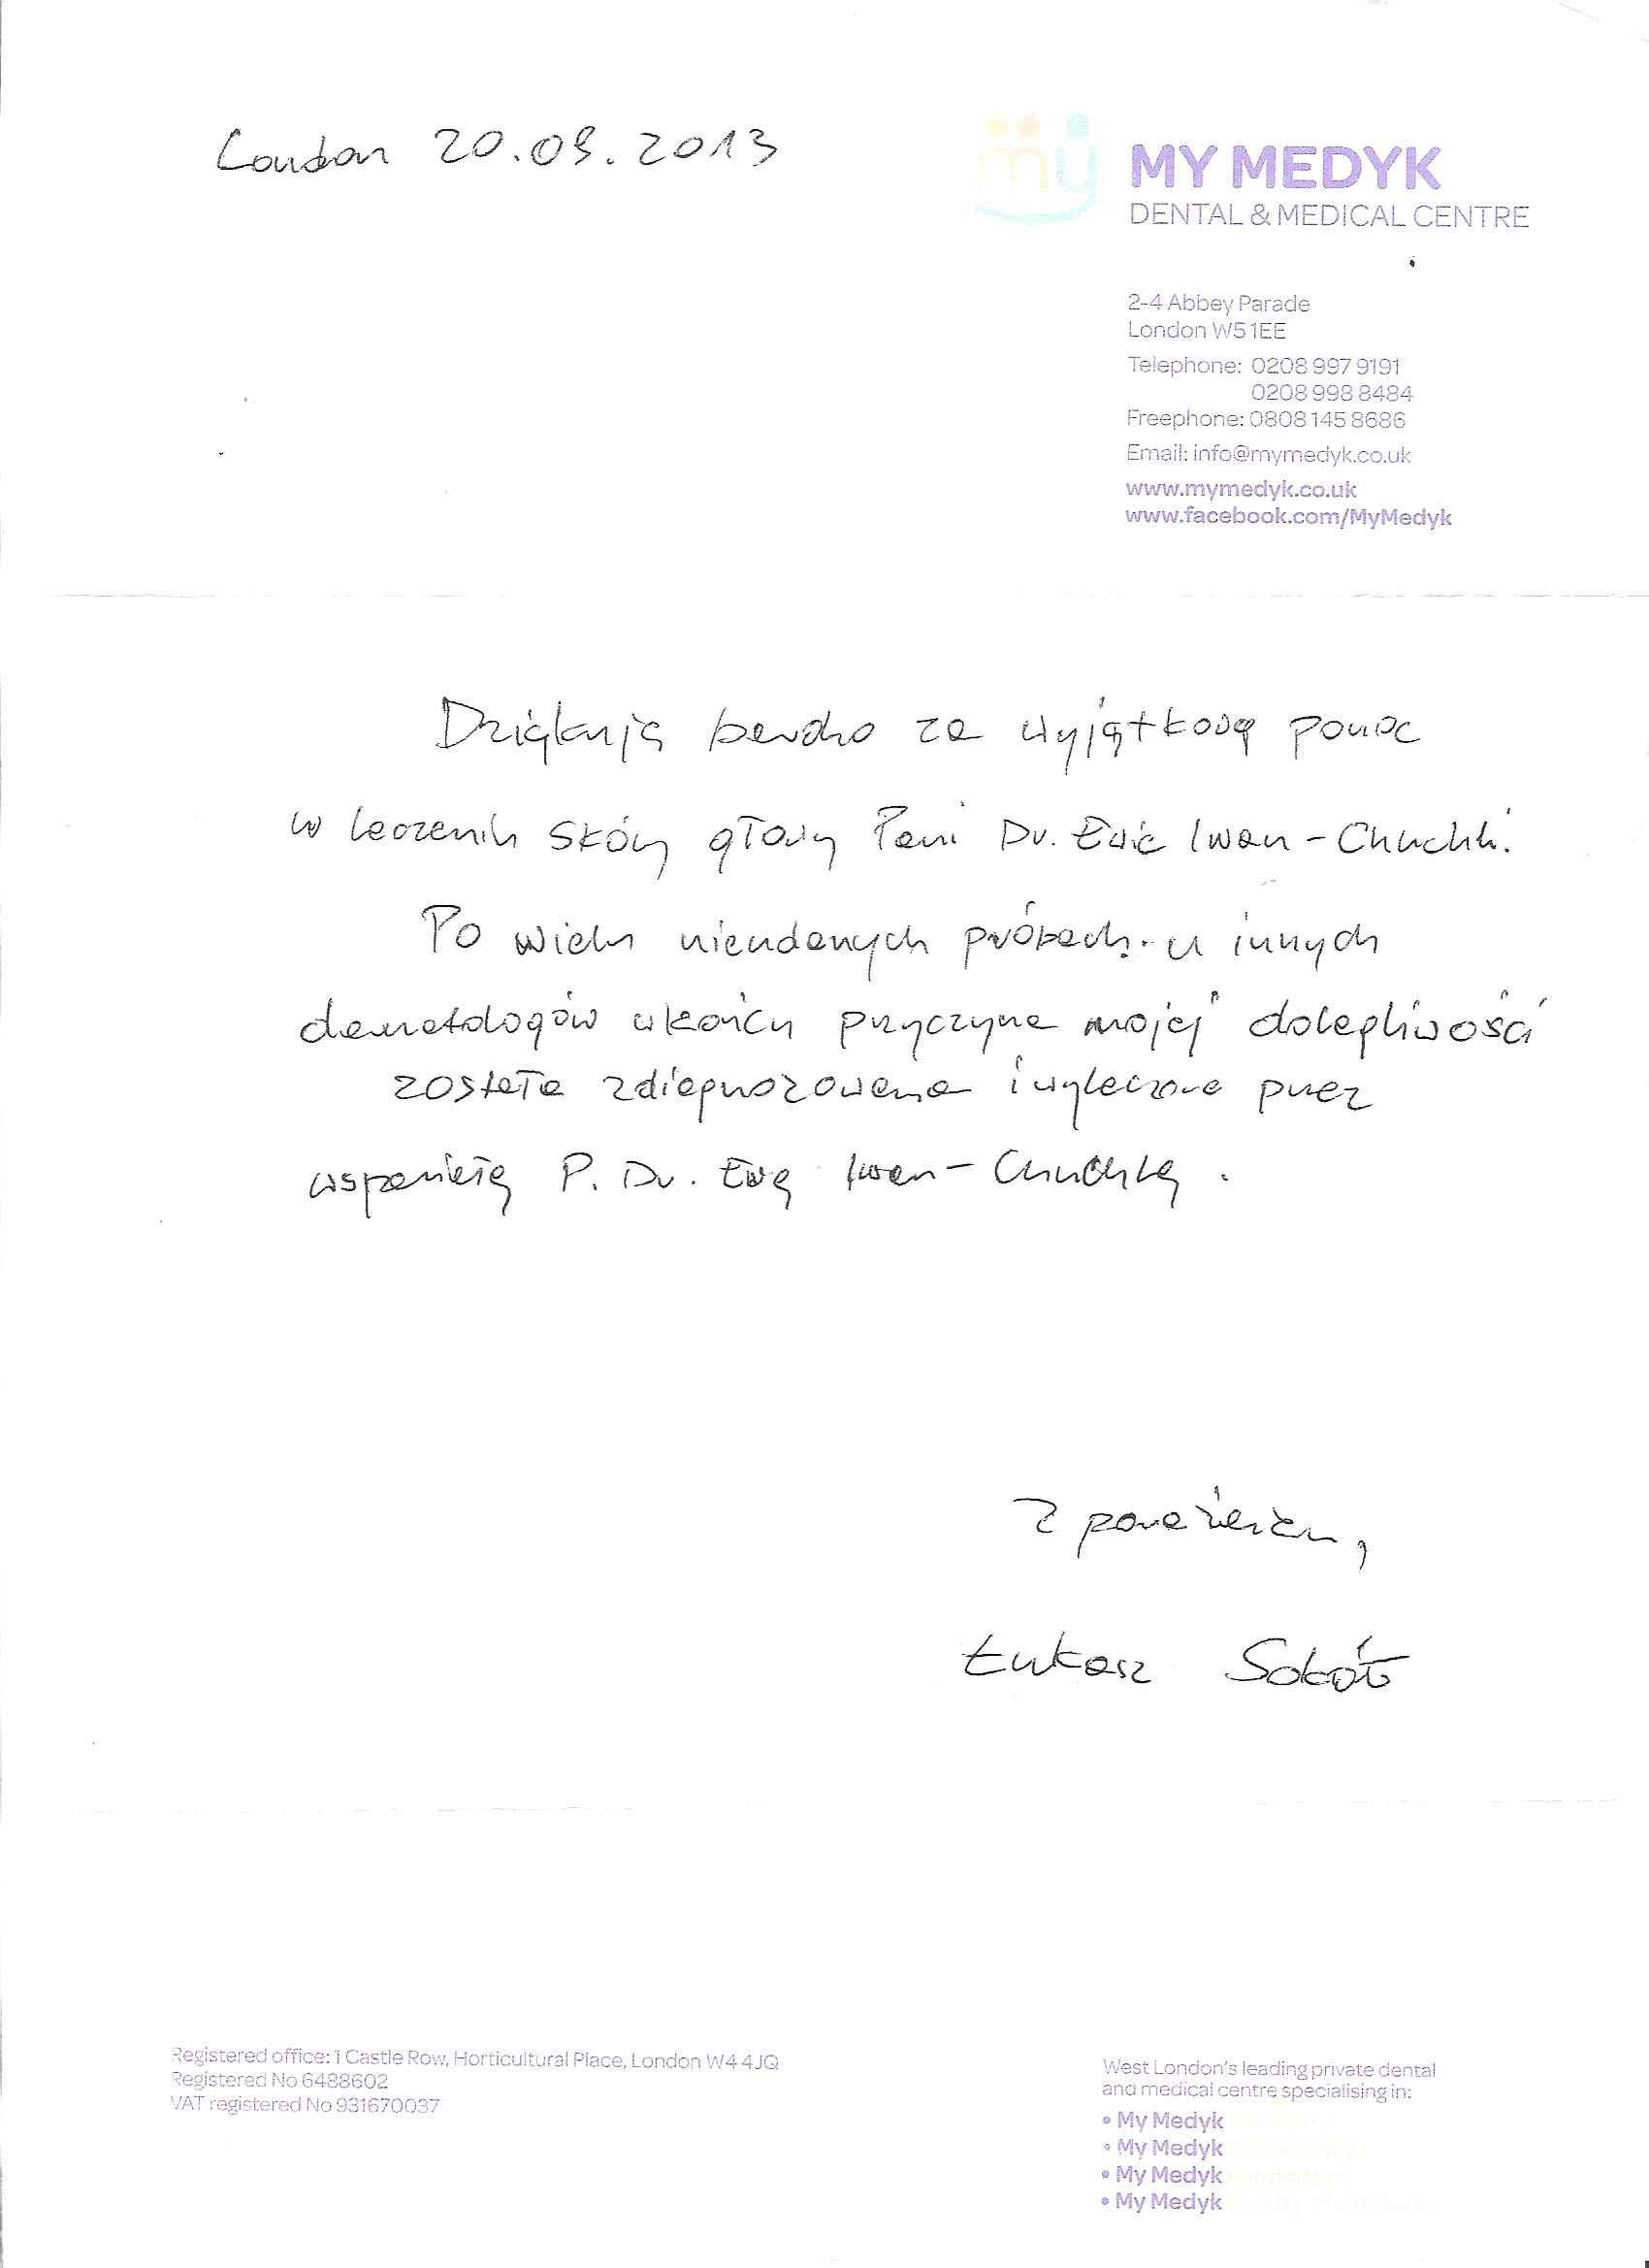 London 20.09.2013
my
MY MEDYK
DENTAL & MEDICAL CENTRE
2-4 Abbey Parade
London W5 1EE
Telephone: 0208 997 9191
0208 998 8484
Freephone: 0808 145 8686
Email: info@mymedyk.co.uk
www.mymedyk.co.uk
www.facebook.com/MyMedyk
Dziękuję bardzo za wyjątkową pomoc
w leczeniu skóry głowy Pani Dr. Ewie Iwan-Chuchli.
Po wielu nieudanych próbach u innych
dermatologów wkońcu przyczyna mojej dolegliwości
została zdiagnozowana i wyleczona przez
wspaniałą P. Dr. Ewę Iwan-Chuchlę.
Z poważaniem,
Łukasz Sokół
Registered office: 1 Castle Row, Horticultural Place, London W4 4JQ
Registered No 6488602
VAT registered No 931670037
West London's leading private dental
and medical centre specialising in:
• My Medyk
• My Medyk
• My Medyk Paediatrics
• My Medyk Beauty Treatment